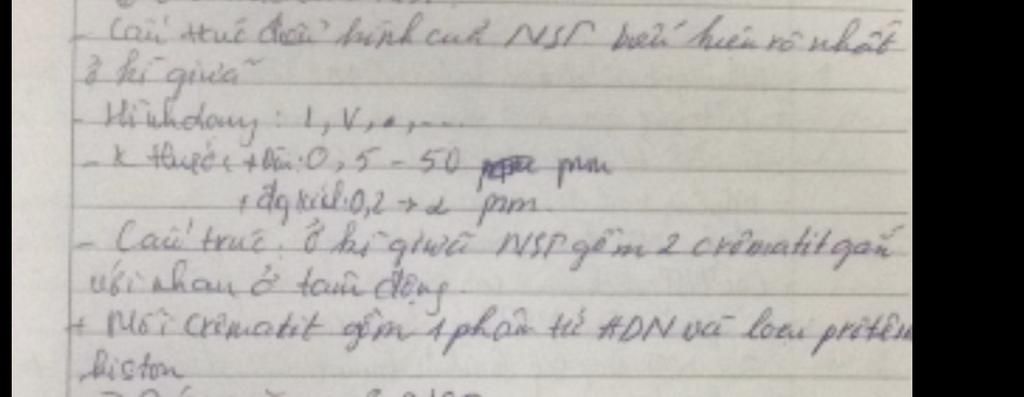 - Cấu trúc điển hình của NST biểu hiện rõ nhất
ở kì giữa
- Hình dạng: 1, V, •, ....
- K thước + Dài: 0,5 - 50 µm
+ đg kính: 0,2 → 2 µm
- Cấu trúc: ở kì giữa NST gồm 2 crômatit gắn
với nhau ở tâm động.
+ Mỗi crômatit gồm 1 phân tử ADN và loại prôtêin
histon